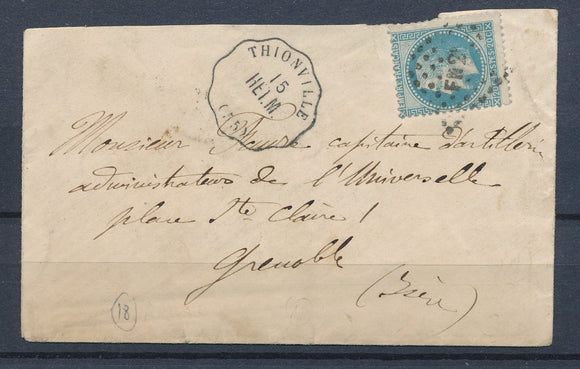 THIONVILLE
15
HEIM.
Monsieur capitaine d'artillerie
administrateur de l'Universelle
place Ste Claire 1
Grenoble
(Isère)
18